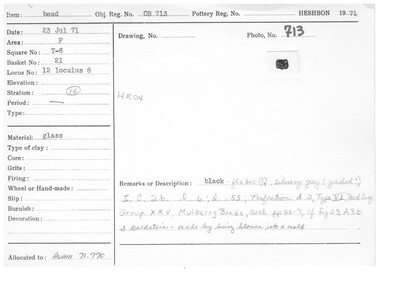 Item: bead Obj. Reg. No. OB 713 Pottery Reg. No. HESHBON 1971
Date: 23 Jul 71
Area: F
Square No: T-6
Basket No: 21
Locus No: 12 loculus 8
Elevation:
Stratum: 12
Period: —
Type:
Drawing, No. Photo, No. 713
Material: glass
Type of clay:
Core:
Grits:
Firing:
Wheel or Hand-made:
Slip:
Burnish:
Decoration:
Remarks or Description: black - silvery gray
I. C. 2b. .55; Perforation d. 2, Type VI,
Group XXV, Mulberry Beads, Beck pp. Fig 23, A.3.b.
Goldstein - made by being blown into a mold
Allocated to: 71.770